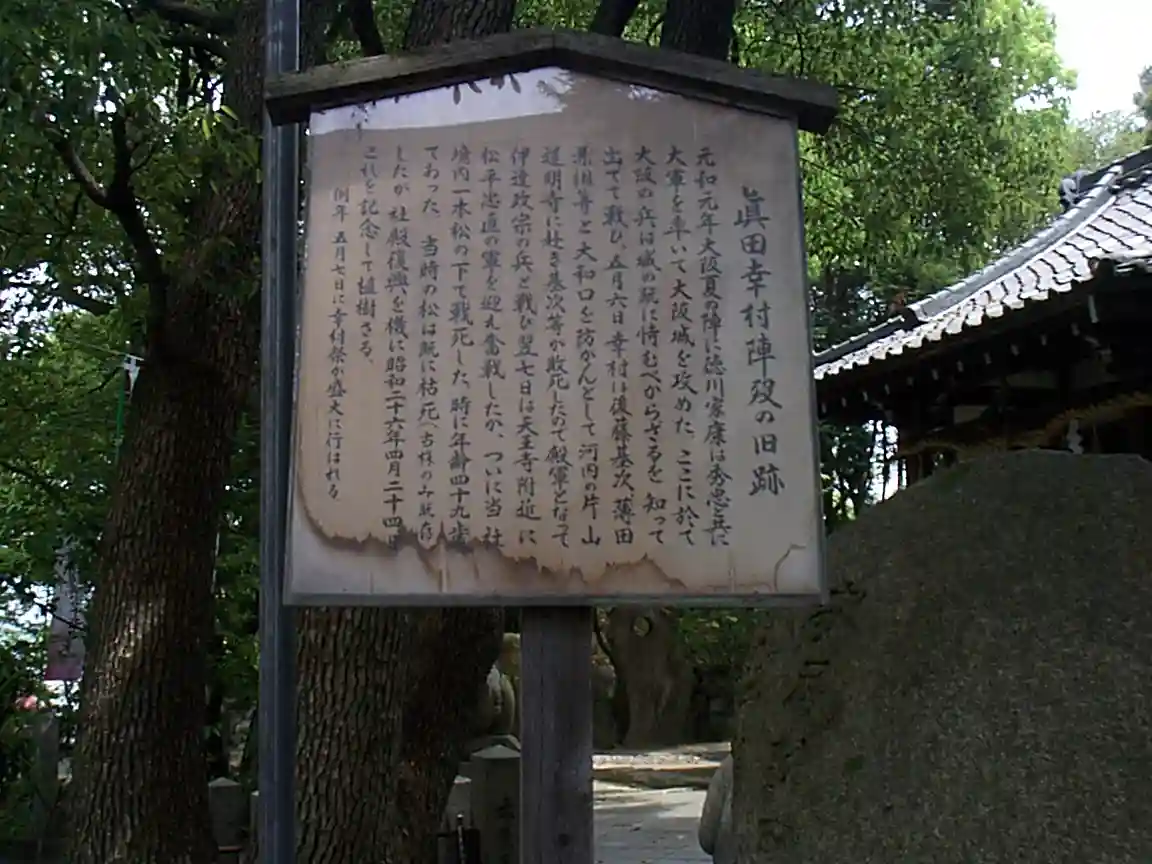 眞田幸村陣歿の旧跡
元和元年大阪夏の陣に徳川家康は秀忠と共に
大軍を率いて大阪城を攻めた、ここに於て
大阪の兵は城の既に恃むべからざるを知って
出でて戦ひ、五月六日幸村は後藤基次、薄田
兼相等と大和口を防がんとして河内の片山
道明寺に赴き基次等が敗死したので殿軍となって
伊達政宗の兵と戦ひ翌七日は天王寺附近に
松平忠直の軍を迎え奮戦したが、ついに当社
境内一本松の下で戦死した、時に年齢四十九歳
であった、当時の松は既に枯死(古株のみ既存
したが社殿復興を機に昭和二十六年四月二十四日
これを記念して植樹さる、
例年五月七日に幸村祭が盛大に行はれる